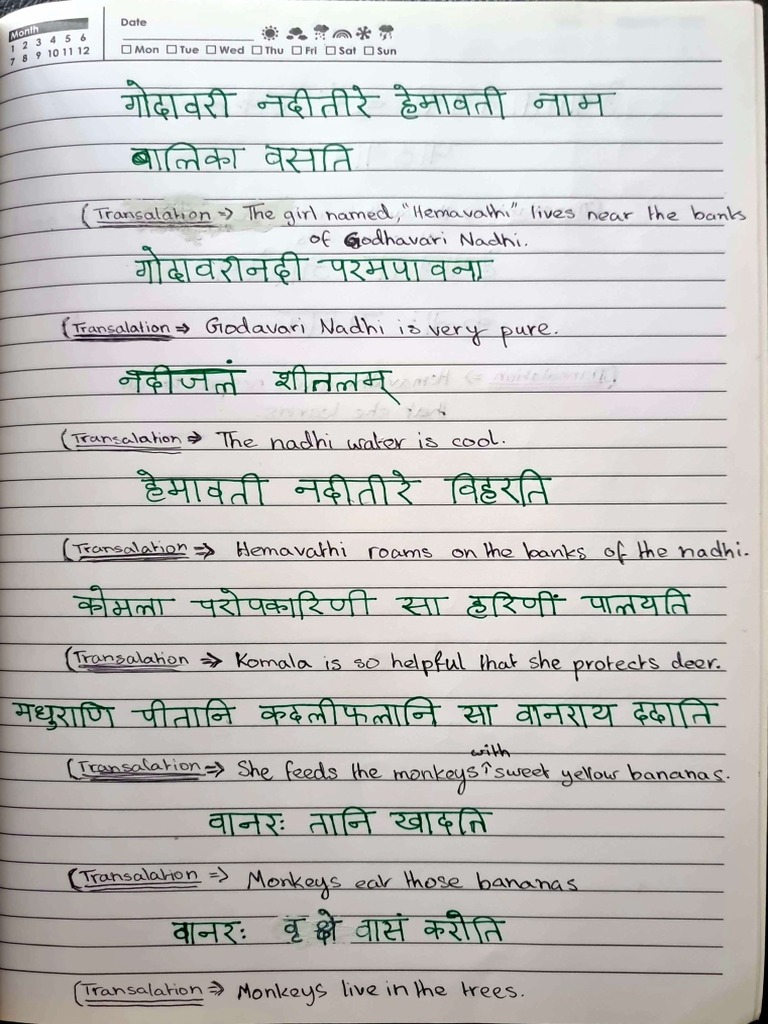 Month
Date
1 2 3 4 5 6
7 8 9 10 11 12
Mon Tue Wed Thu Fri Sat Sun
गोदावरी नदीतीरे हेमावती नाम
बालिका वसति
(Transalation => The girl named, "Hemavathi" lives near the banks
of Godhavari Nadhi.
गोदावरीनदी परमपावना
(Transalation => Godavari Nadhi is very pure.
नदीजलं शीतलम्
(Transalation => The nadhi water is cool.
हेमावती नदीतीरे विहरति
(Transalation => Hemavathi roams on the banks of the nadhi.
कोमला परोपकारिणी सा हरिणीं पालयति
(Transalation => Komala is so helpful that she protects deer.
मधुराणि पीतानि कदलीफलानि सा वानराय ददाति
(Transalation => She feeds the monkeys with sweet yellow bananas.
वानरः तानि खादति
(Transalation => Monkeys eat those bananas
वानरः वृक्षे वासं करोति
(Transalation => Monkeys live in the trees.